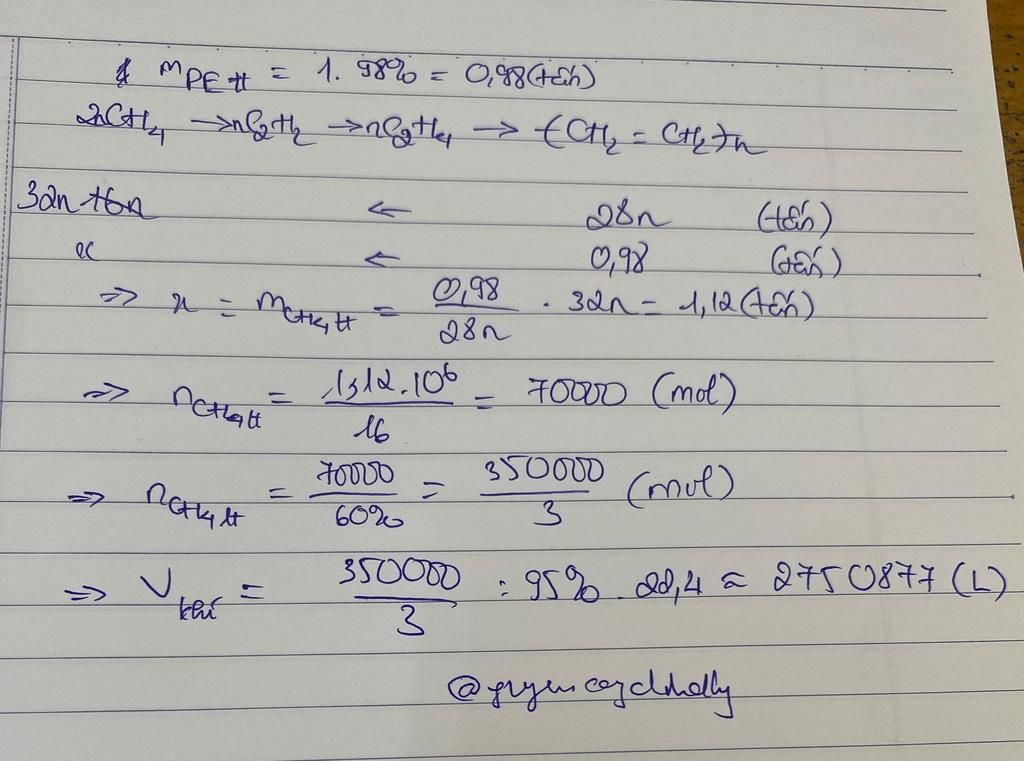 m PE tt = 1. 98% = 0,98 (tấn)
2nCH4 → nC2H2 → nC2H4 → (CH2 = CH2)n
32n ← 28n (tấn)
x ← 0,98 (tấn)
=> x = mCH4 tt = 0,98/28n . 32n = 1,12 (tấn)
=> nCH4 tt = 1,12.10^6/16 = 70000 (mol)
=> nCH4 lt = 70000/60% = 350000/3 (mol)
=> V khí = 350000/3 : 95% . 22,4 ≈ 2750877 (L)